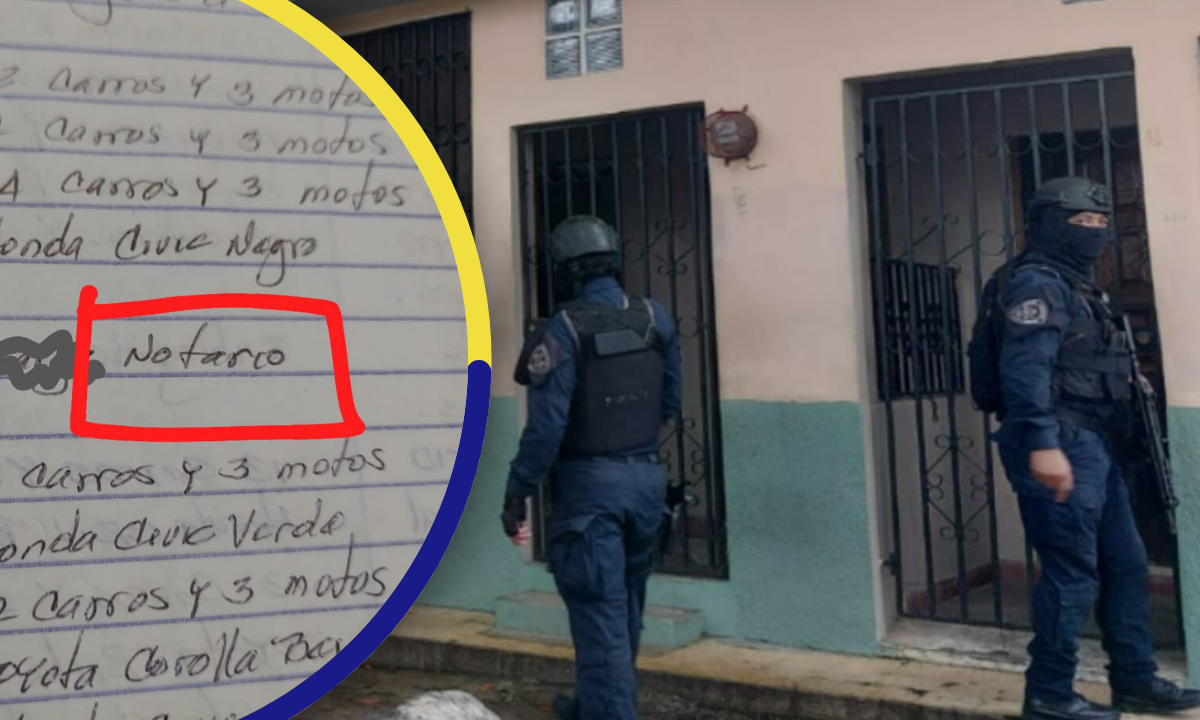 2 Carros y 3 motos
Carros y 3 motos
4 Carros y 3 motos
onda Civic Negro
Notario
Carros y 3 motos
onda Civic Verde
2 Carros y 3 motos
oyota Corolla